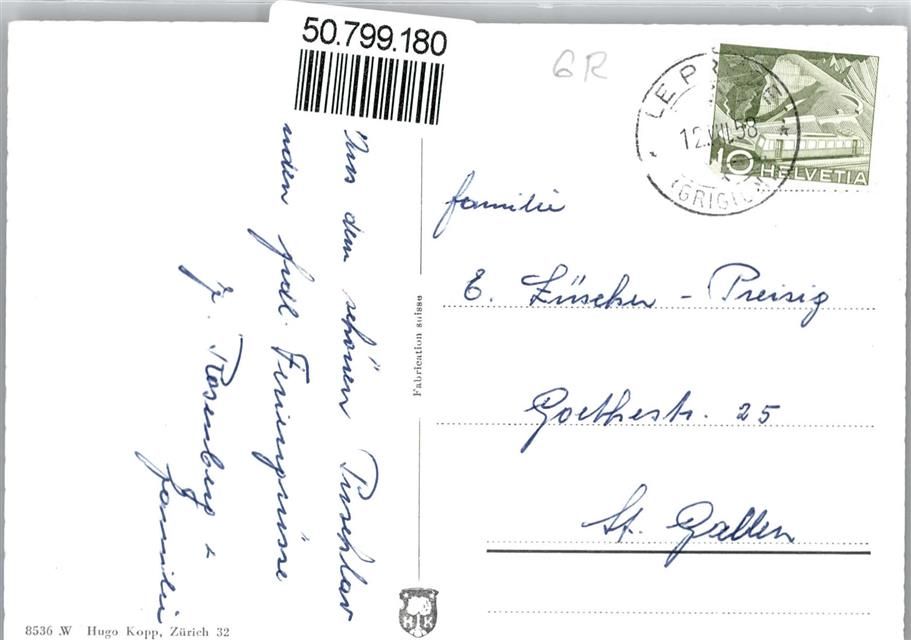 50.799.180
GR
LE PRESE
12.VII.58
(GRIGIONI)
10 HELVETIA
Aus dem schönen Puschlav
senden frdl. Feriengrüsse
J. Rosenberg +
Familie
Fabrication suisse
Familie
E. Züscher - Preisig
Goethestr. 25
St. Gallen
H K
8536 W Hugo Kopp, Zürich 32